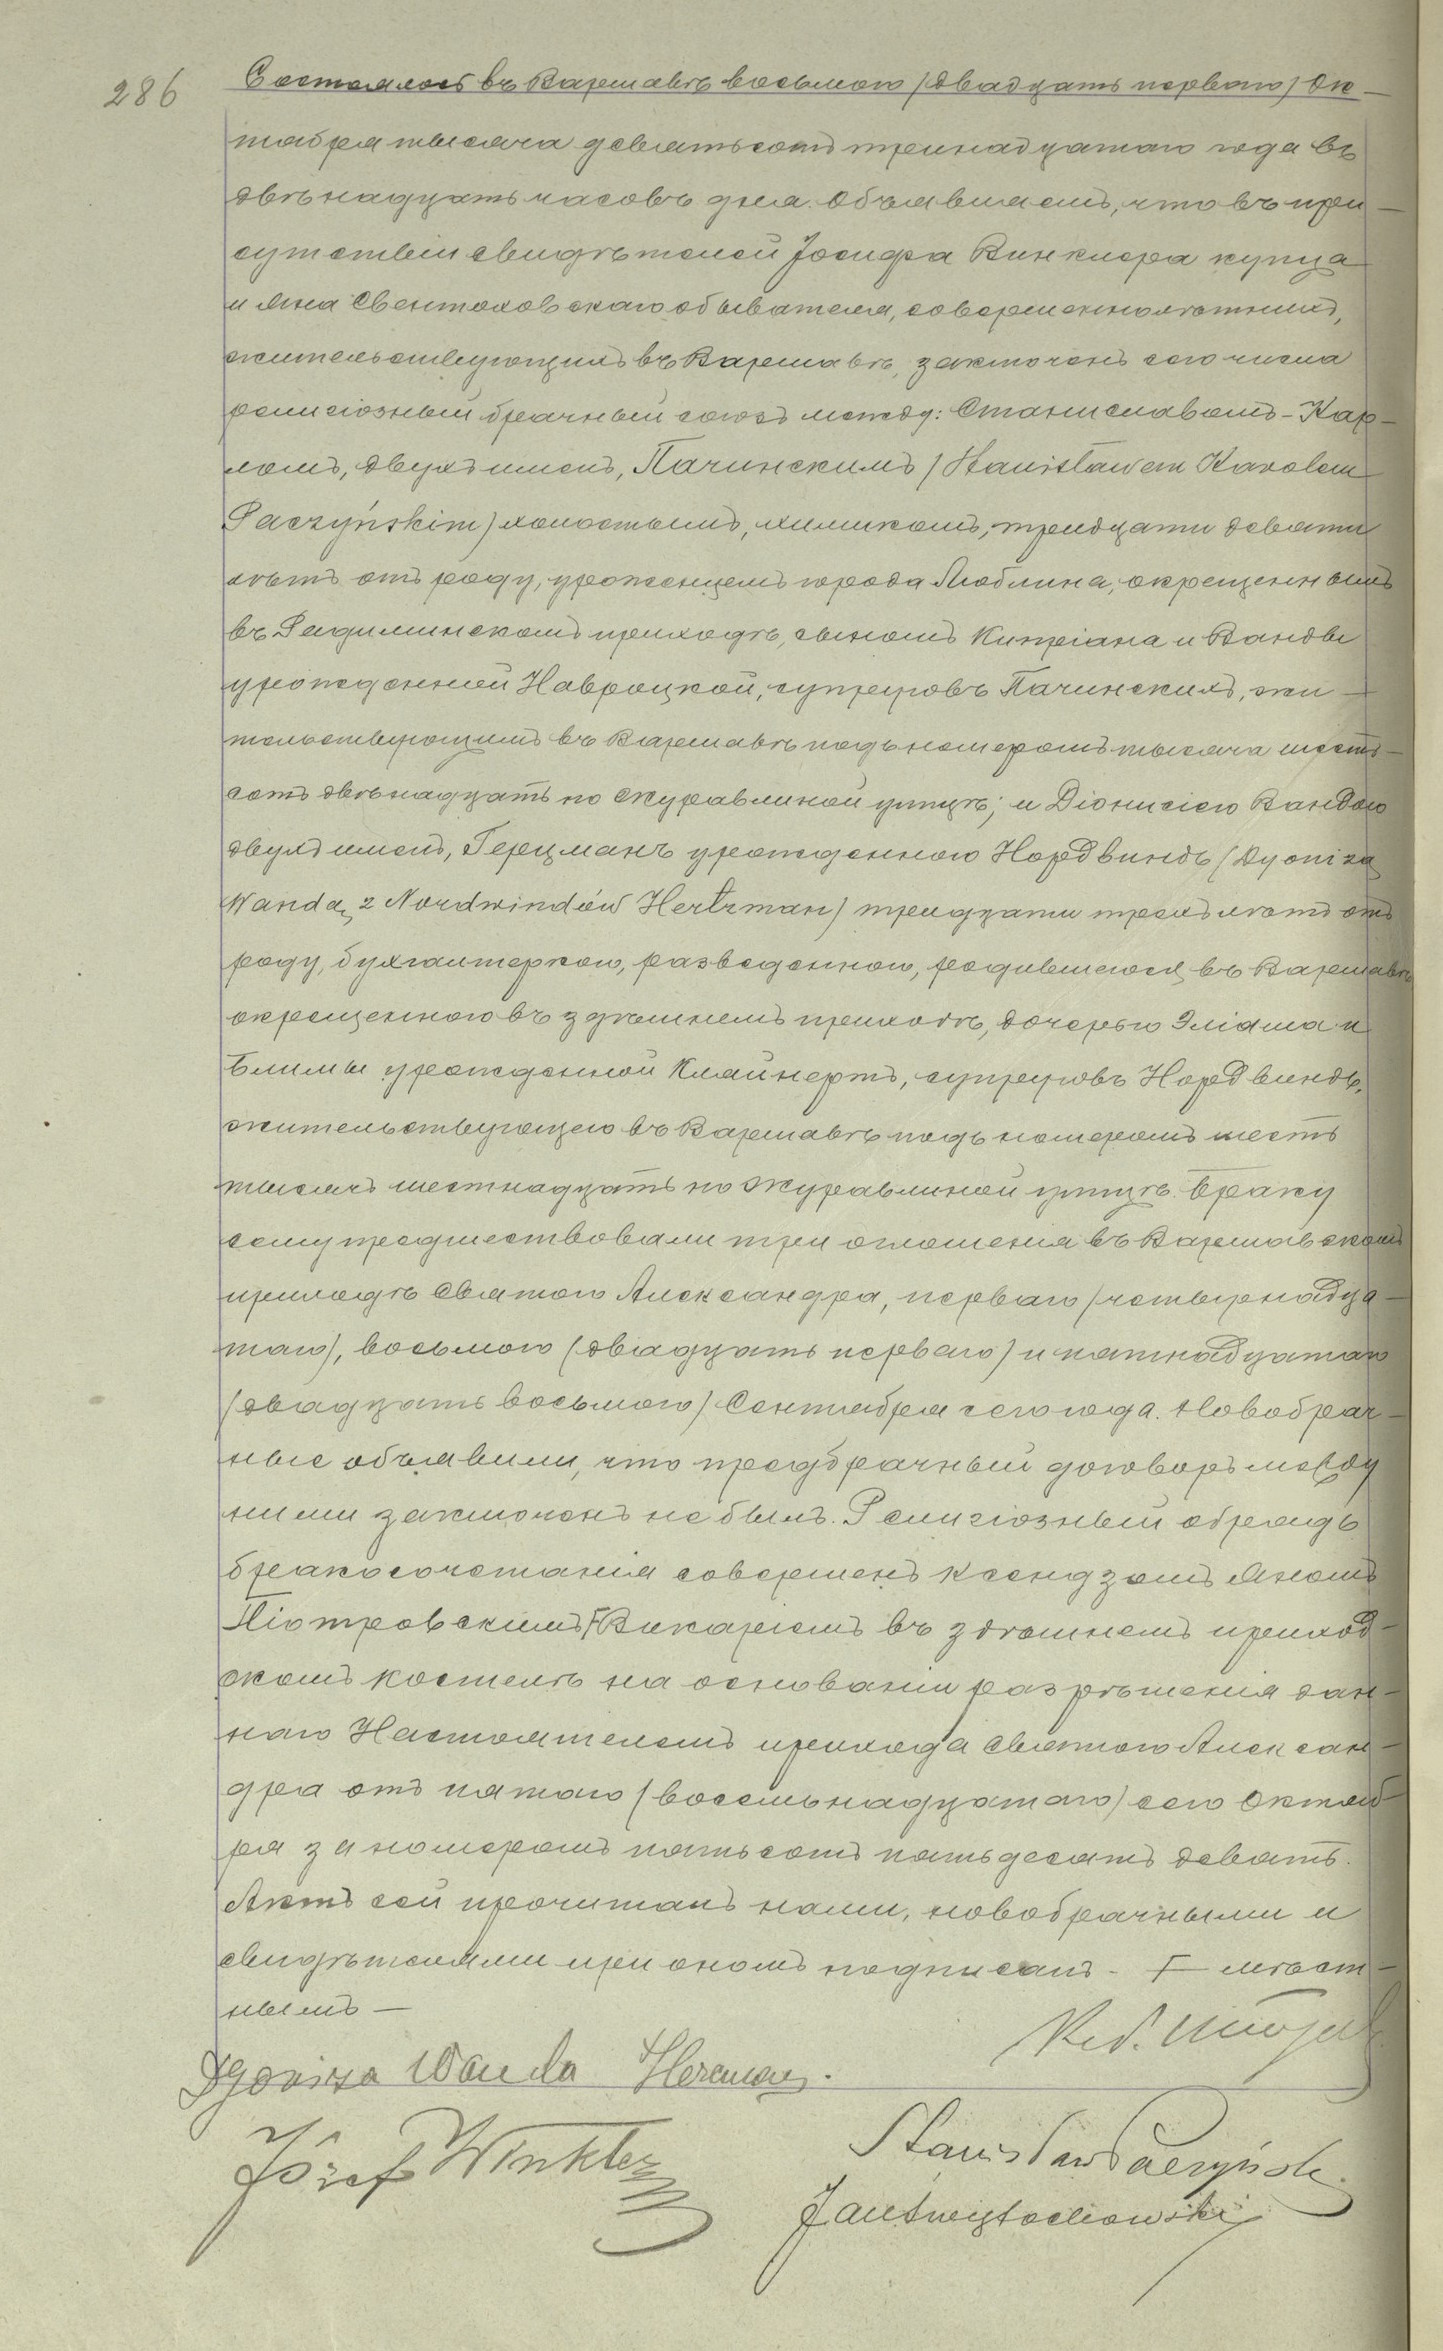 286
Состоялось въ Варшавѣ восьмого /двадцать перваго/ Ок-
тября тысяча девятьсотъ тринадцатаго года въ
двѣнадцать часовъ дня. Объявляемъ, что въ при-
сутствіи свидѣтелей Іосифа Винклера купца
и Яна Свентоховскаго обывателя, совершеннолѣтнихъ,
жительствующихъ въ Варшавѣ, заключенъ сего числа
религіозный брачный союзъ между: Станиславомъ-Кар-
ломъ, двухъ именъ, Пачинскимъ /Stanisławem Karolem
Paczyńskim/ холостымъ, химикомъ, тридцати девяти
лѣтъ отъ роду, уроженцемъ города Люблина, окрещеннымъ
въ Радиминскомъ приходѣ, сыномъ Кипріана и Ванды
урожденной Навроцкой, супруговъ Пачинскихъ, жи-
тельствующимъ въ Варшавѣ подъ номеромъ тысяча шесть-
сотъ двѣнадцать по Журавлиной улицѣ; и Діонисіею Вандою
двухъ именъ, Герцманъ урожденною Нордвиндъ /Dyonizą
Wandą z Nordwindów Hertzman/ тридцати трехъ лѣтъ отъ
роду, бухгалтеркою, разведенною, родившеюся въ Варшавѣ
окрещенною въ здѣшнемъ приходѣ, дочерью Эліаша и
Блимы урожденной Клайнертъ, супруговъ Нордвиндъ,
жительствующею въ Варшавѣ подъ номеромъ шесть
тысячъ шестнадцать по Журавлиной улицѣ. Браку
сему предшествовали три оглашенія въ Варшавскомъ
приходѣ Святого Александра, перваго /четырнадца-
таго/, восьмого /двадцать перваго/ и пятнадцатаго
/двадцать восьмого/ Сентября сего года. Новобрач-
ные объявили, что предбрачный договоръ между
ними заключенъ не былъ. Религіозный обрядъ
бракосочетанія совершенъ ксендзомъ Яномъ
Піотровскимъ Г Викаріемъ въ здѣшнемъ приход-
скомъ костелѣ на основаніи разрѣшенія дан-
наго Настоятелемъ прихода Святого Алексан-
дра отъ пятаго /восемьнадцатаго/ сего Октяб-
ря за номеромъ пятьсотъ пятьдесятъ девять.
Актъ сей прочитанъ нами, новобрачными и
свидѣтелями при ономъ подписанъ. - Г мѣст-
нымъ -
Dyoniza Wanda Hercman.
Józef Winkler
Stanisław Paczyński
Jan Swiętochowski